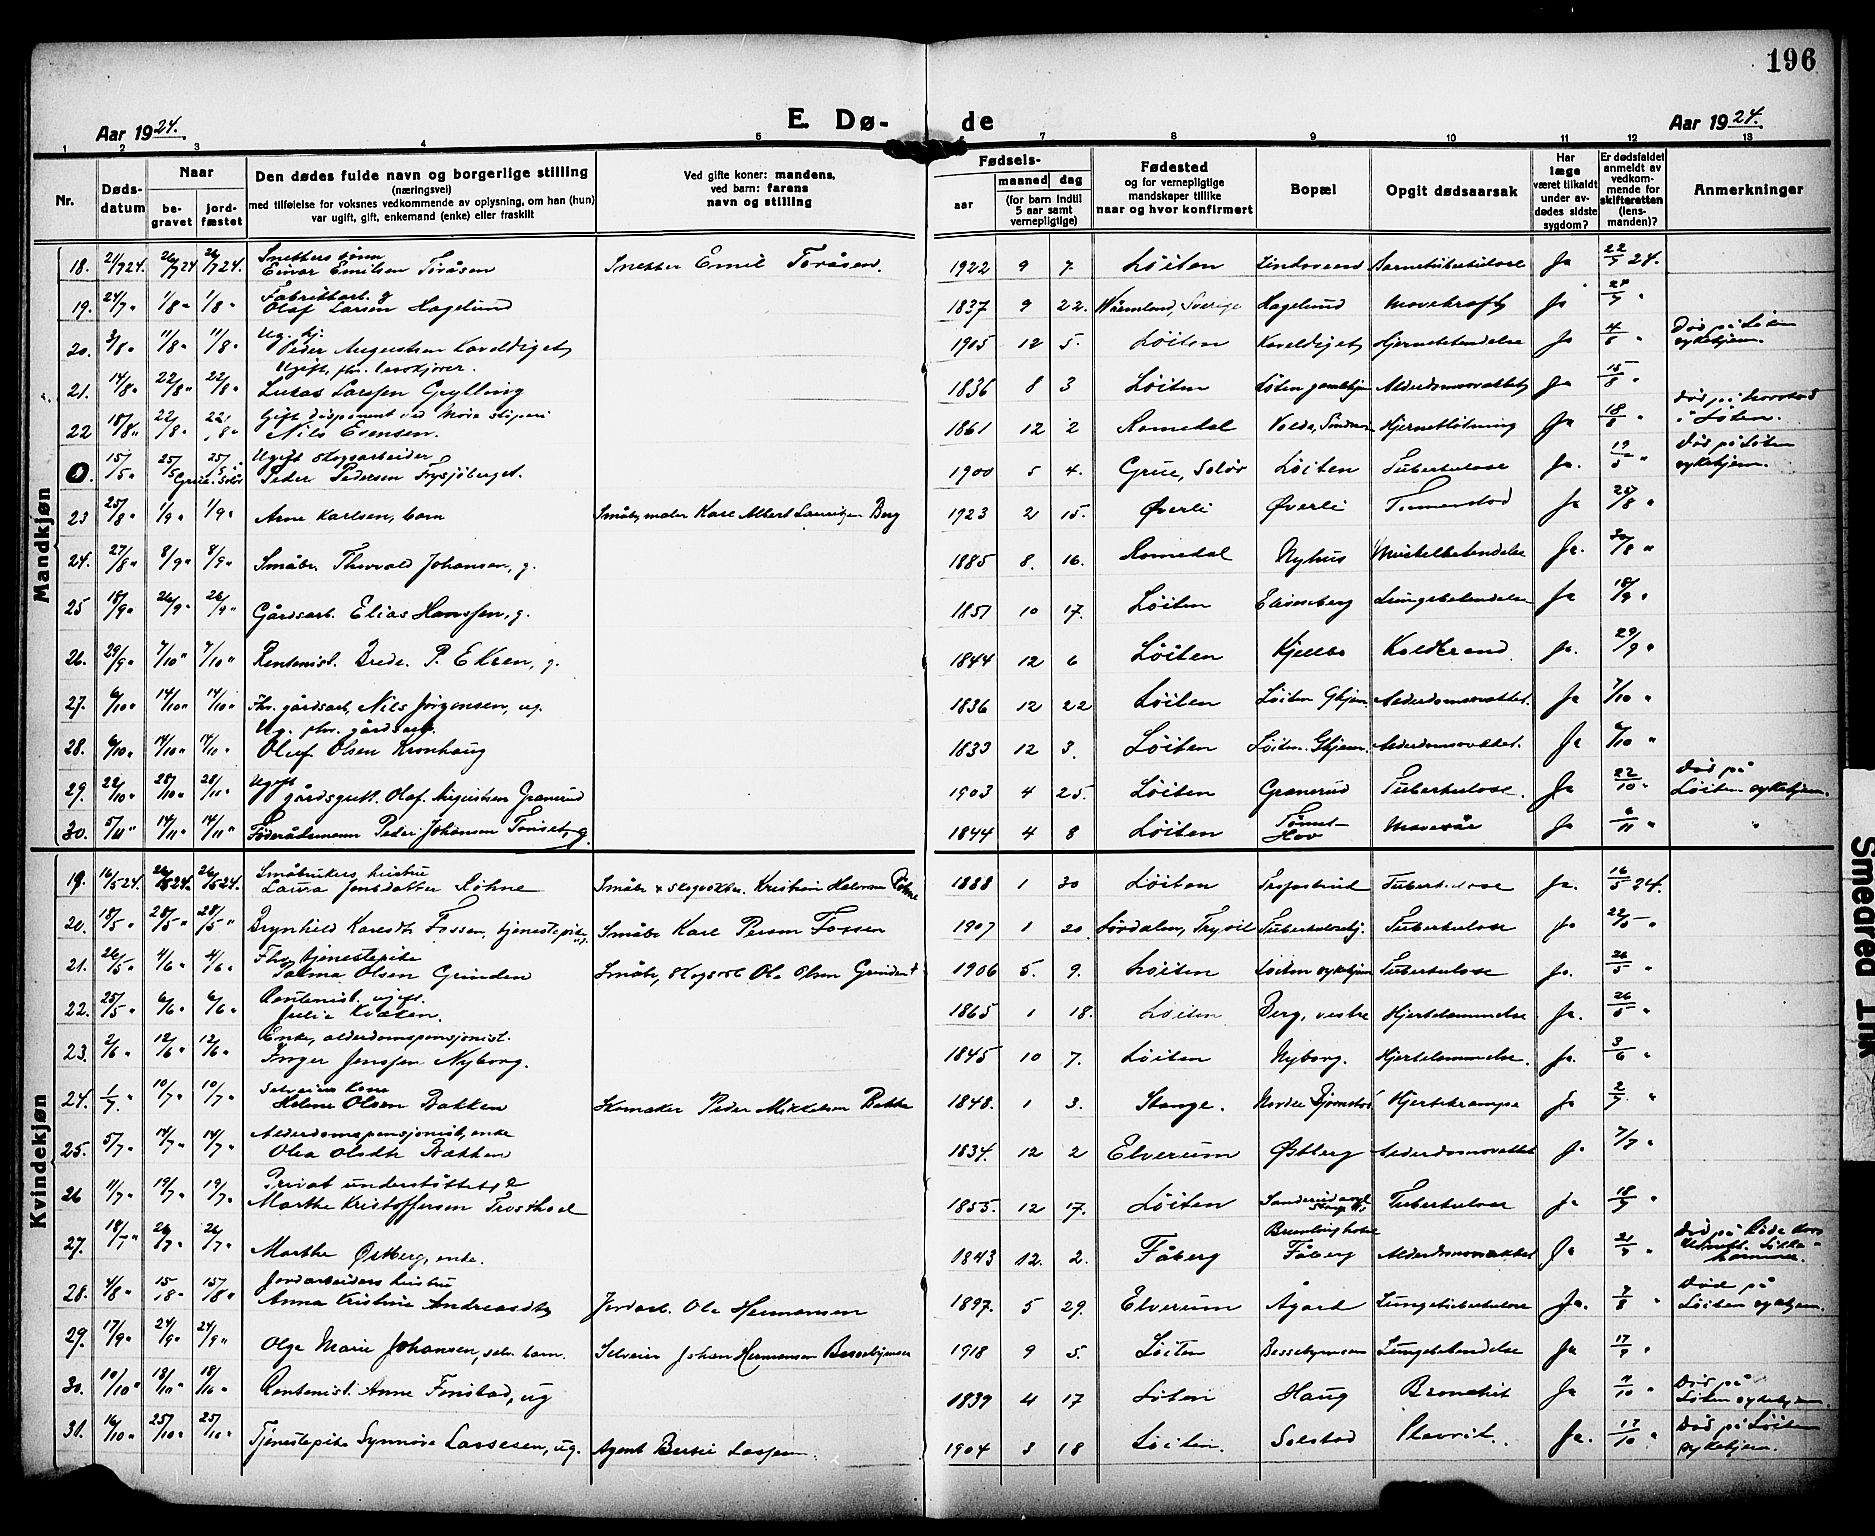 196
Aar 1924.
E. Dø-
de
Aar 1924.
1 2 3 4 5 7 8 9 10 11 12 13
Nr.
Døds-
datum
Naar
be-
gravet
jord-
fæstet
Den dødes fulde navn og borgerlige stilling
(næringsvei)
med tilføielse for voksnes vedkommende av oplysning, om han (hun)
var ugift, gift, enkemand (enke) eller fraskilt
Ved gifte koner: mandens,
ved barn: farens
navn og stilling
Fødsels-
aar
maaned
dag
(for barn indtil
5 aar samt
vernepligtige)
Fødested
og for vernepligtige
mandskaper tillike
naar og hvor konfirmert
Bopæl
Opgit dødsaarsak
Har
læge
været tilkaldt
under av-
dødes sidste
sygdom?
Er dødsfaldet
anmeldt av
vedkom-
mende for
skifteretten
(lens-
manden)?
Anmerkninger
Mandkjøn
18. 21/7 24. 26/7 24 26/7 24. Snekkers sønn Einar Emilsen Toråsen Snekker Emil Toråsen. 1922 9 7. Løiten Lindsveen Barnetuberkulose Ja 22/7 24.
19. 24/7 " 1/8 " 1/8 " Fabrikkarb. g Olaf Larsen Hagelund 1837 9 22. Wärmland, Sverige Hagelund Mavekræft Ja "
20. 2/8 " 11/8 " 11/8 " Ug. Peder Augustsen Kaveldiget 1905 12 5. Løiten Kaveldiget Hjernebetendelse Ja 4/8 " Død på Løten sykehjem.
21. 14/8 " 22/8 " 22/8 " Ugift, fhv. lasskjører. Lukas Larsen Grylling 1836 8 3 Løiten Løten gamlehjem Alderdomssvakhet Ja 15/8 "
22 18/8 " 22/8 " 22/8 " Gift disponent ved Nils Esensen. 1861 12 2 Romedal Volda, Hjerneblødning Ja 18/8 " Død på i Løten.
0. 15/5 " 25/5 Grue. Solør 25/5 " Ugift skogsarbeider Peder Pedersen Frysjøberget. 1900 5 4. Grue, Solør Løiten Tuberkulose Ja. 19/5 " Død på Løten sykehjem.
23 25/8 " 1/9 " 1/9 " Arne Karlsen, barn Småbr, maler Karl Albert Lauritzen Berg 1923 2 15. Øverli Øverli Ja 25/8 "
24. 27/8 " 8/9 " 8/9 " Småbr. Thorvald Johansen, g. 1885 8. 16. Romedal Nyhus Ja. 30/8 "
25 18/9 " 26/9 " 26/9 " Gårdsarb. Elias Hanssen, g. 1851 10 17. Løiten Elvesberg Lungebetendelse Ja 18/9 "
26. 29/9 " 7/10 " 7/10 " Rentenist. Brede. P. Eksen, g. 1844 12 6 Løiten Kjelbo Koldbrand Ja. 29/9 "
27. 6/10 " 14/10 " 14/10 " Fhv. gårdsarb, Nils Jørgensen, ug. 1836 12 22 Løiten Løiten Ghjem Alderdomssvakhet. Ja 7/10 "
28. 6/10 " 14/10 " 14/11 " Ug. fhv. gårdsarb. Oluf Olsen Kronhaug 1833 12 3. Løiten Løiten. Ghjem. Alderdomssvakhet. Ja 6/10 "
29. 22/10 " 28/10 " 28/11 " Ugift gårdsgutt. Olaf. Augustsen Granerud 1903 4 25. Løiten Granerud Tuberkulose. Ja 22/10 " Død på Løiten sykehjem.
30. 5/11 " 14/11 " 14/11 " Føderådsmann Peder Johansen Tønset, g. 1844 4 8 Løiten Tønset-Hov Mavesår Ja 6/11 " "
Kvindekjøn
19. 16/5 24. 26/5 24. 26/5 24. Småbrukers hustru Laura Jensdatter Røhne Småbr & skogvokter. Kristian Halvorsen Røhne 1888 1 30 Løiten Tuberkulose Ja. 16/5 24.
20. 18/5 " 28/5 " 28/5 " Brynhild Karlsdtr Fossen, tjenestepike ug. Småbr Karl Persen Fossen 1907 1 20 Sørdalen, Trysil Tuberkulosehj. Tuberkulose Ja 22/5 "
21. 26/5 " 4/6 " 4/6 " Fhv tjenestepike Palma Olsen Grinden Småbr, Skogsarb Ole Olsen Grinden † 1906 5. 9. Løiten Løiten sykehjem Tuberkulose Ja. 26/5 "
22. 25/5 " 6/6 " 6/6 " Rentenist. ugift. Julie Kvæken. 1865 1 18. Løiten Berg, vestre Hjertelammelse Ja. 26/5 "
23. 2/6 " 12/6 " 12/6 " Enke, alderdomspensjonist. Inger Jenssen Nyborg. 1845 10 7. Løiten Nyborg. Hjertelammelse. Ja. 3/6 "
24. 1/7. 10/7 " 10/7 " Selveiers kone Helene Olsen Bakken Skomaker Peder Mikkelsen Bakken 1848. 1 3. Stange. Nordre Bjørnstad Hjertekrampe Ja 2/7. "
25. 5/7 " 14/7 " 14/7 " Alderdomspensjonist, enke Olea Olsdtr Bakken 1834. 12 2 Elverum Østberg Alderdomssvakhet Ja. 7/7 "
26 11/7 " 19/7 " 19/7 " Privat understøttet, g Marthe Kristoffersen Frosthoel 1855. 12 17. Løiten Tuberkulose Ja 18/7 "
27. 18/7 " 26/7 " 26/7 " Marthe Østberg, enke. 1843 12. 2. Fåberg Fåberg Alderdomssvakhet Ja 21/7 " Død på Røde Kors
28. 4/8 " 15/8 " 15/8 " Jordarbeiders hustru Anna Kristine Andreasdtr Jordarb. Ole Hermansen 1897. 5 29. Elverum Ågard Lungetuberkulose Ja. 7/8 " Død på Løiten sykehjem.
29. 17/9 " 24/9 " 24/9 " Olga Marie Johansen, selv. barn. Selveier Johan Hermansen Bessebymoen 1918 9 5. Løiten Bessebymoen Lungebetendelse Ja 17/9 "
30. 10/10 " 18/10 " 18/10 " Rentenist. Anne Finstad, ug 1839 4 17 Løten Haug Bronchit Ja 11/10 " Død på Løiten sykehjem.
31. 16/10 " 25/10 " 25/10 " Tjenestepike Synnøve Lassesen, ug. Agent Lassesen. 1904 3 18 Løiten. Solstad Pleurit. Ja. 17/10 " Død på Løiten sykehjem.
Smeared Ink